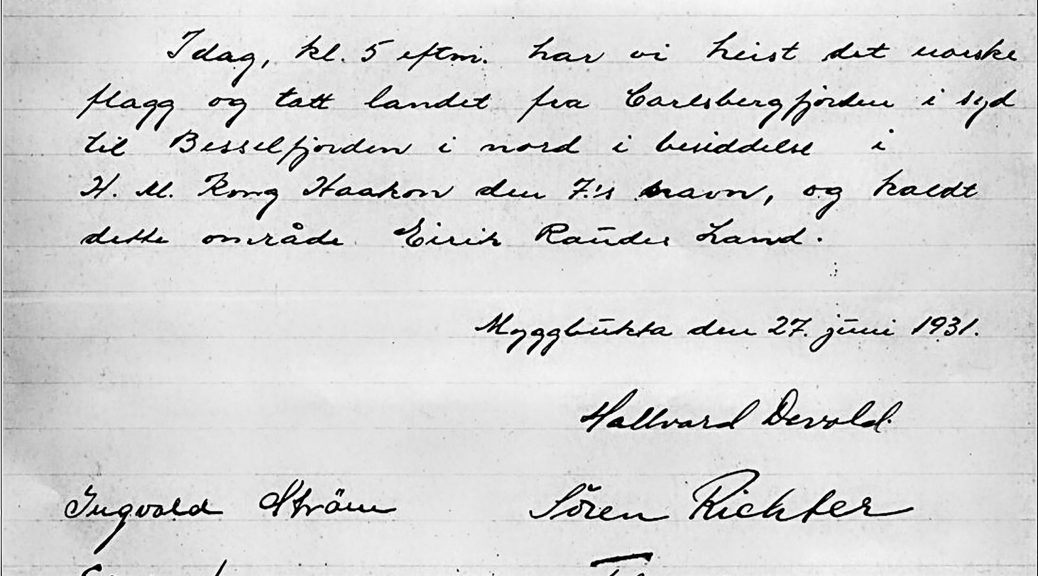 Idag, kl. 5 eftm. har vi heist det norske
flagg og tatt landet fra Carlsbergfjorden i syd
til Besselfjorden i nord i besiddelse i
H. M. Kong Haakon den 7.'s navn, og kaldt
dette område Eirik Raudes Land.
Myggbukta den 27. juni 1931.
Hallvard Devold.
Ingvald Ström Sören Richter